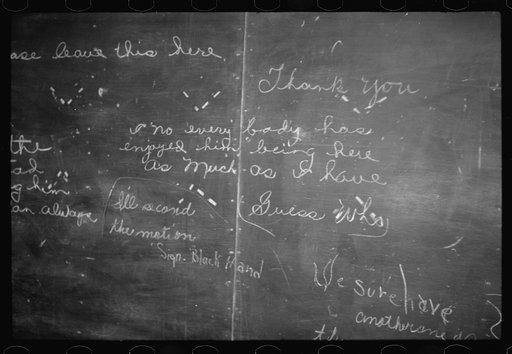 ase leave this here
Thank You
I no every body has
enjoyed him being here
as much as I have
the
ad
g him
an always
I'll second
the motion
"Sign. Black Hand
Guess Who
We sure have
another one
th